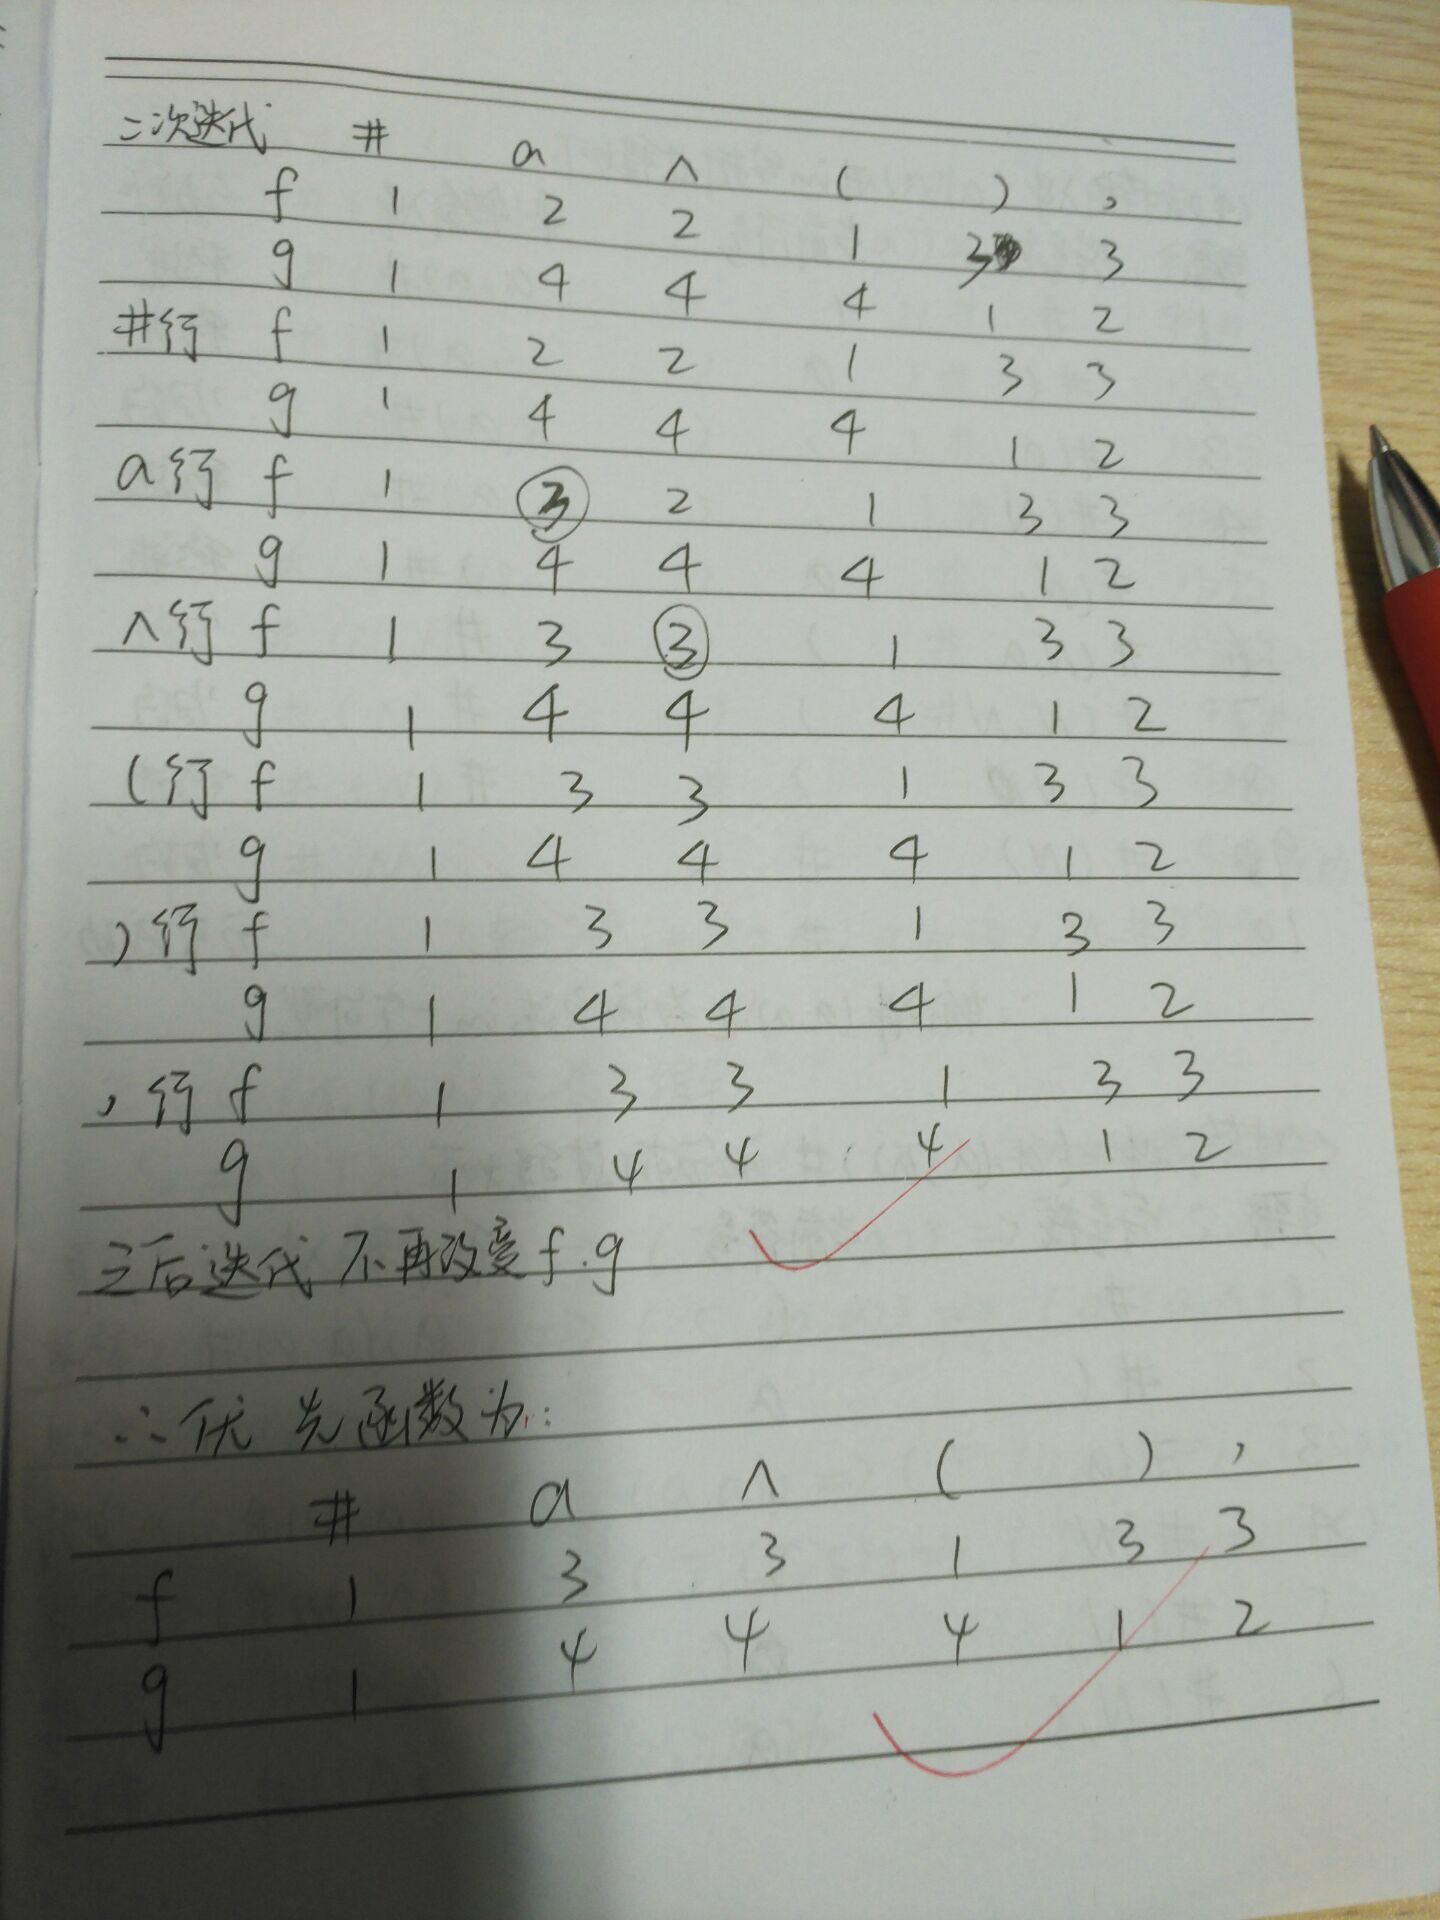 二次迭代 # a ∧ ( ) ,
f 1 2 2 1 3 3
g 1 4 4 4 1 2
#行 f 1 2 2 1 3 3
g 1 4 4 4 1 2
a行 f 1 3 2 1 3 3
g 1 4 4 4 1 2
∧行 f 1 3 3 1 3 3
g 1 4 4 4 1 2
(行 f 1 3 3 1 3 3
g 1 4 4 4 1 2
)行 f 1 3 3 1 3 3
g 1 4 4 4 1 2
,行 f 1 3 3 1 3 3
g 1 4 4 4 1 2
之后迭代不再改变f.g
∴优先函数为:
# a ∧ ( ) ,
f 1 3 3 1 3 3
g 1 4 4 4 1 2